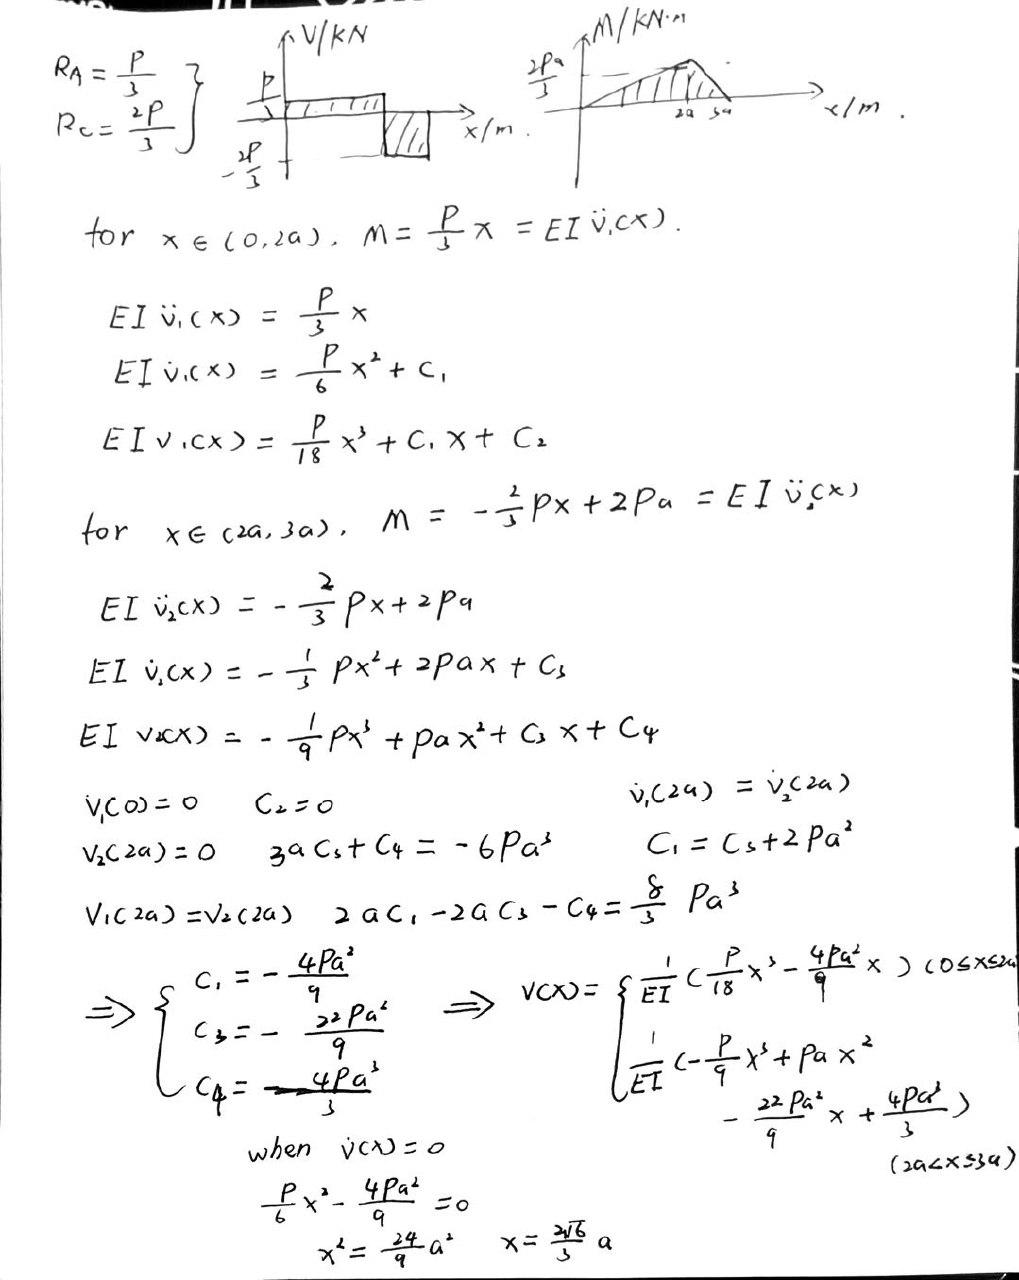 R_A = P/3
R_C = 2P/3
V/kN
P/3
-2P/3
x/m.
M/kN·m
2Pa/3
2a 3a
x/m.
for x ∈ (0, 2a). M = P/3 x = EI v̈₁(x).
EI v̈₁(x) = P/3 x
EI v̇₁(x) = P/6 x² + C₁
EI v₁(x) = P/18 x³ + C₁x + C₂
for x ∈ (2a, 3a). M = -2/3 Px + 2Pa = EI v̈₂(x)
EI v̈₂(x) = -2/3 Px + 2Pa
EI v̇₂(x) = -1/3 Px² + 2Pax + C₃
EI v₂(x) = -1/9 Px³ + Pax² + C₃x + C₄
V₁(0) = 0 C₂ = 0 v̇₁(2a) = v̇₂(2a)
V₂(2a) = 0 3aC₃ + C₄ = -6Pa³ C₁ = C₃ + 2Pa²
V₁(2a) = V₂(2a) 2aC₁ - 2aC₃ - C₄ = 8/3 Pa³
⇒ { C₁ = -4Pa²/9
C₃ = -22Pa²/9
C₄ = 4Pa³/3
⇒ V(x) = { 1/EI (P/18 x³ - 4Pa²/9 x) (0≤x≤2a
1/EI (-P/9 x³ + Pax²
- 22Pa²/9 x + 4Pa³/3)
(2a<x≤3a)
when v̇(x) = 0
P/6 x² - 4Pa²/9 = 0
x² = 24/9 a² x = 2√6/3 a